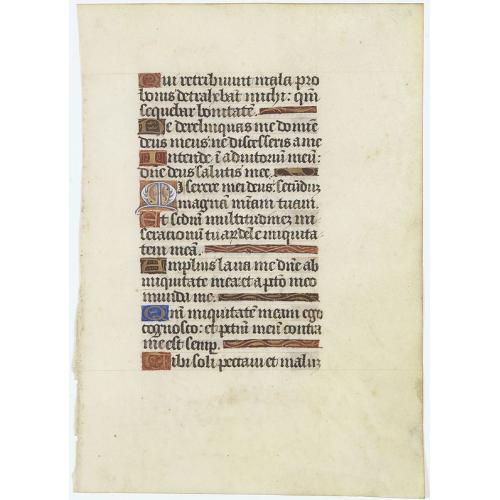 Qui retribuunt mala pro
bonis detrahebāt michi: qm̄
sequebar bonitatē.
Ne derelinquas me domine
deus meus: ne discesseris a me
Intende ī adiutoriū meū:
dn̄e deus salutis mee.
Miserere mei deus: secūduz
magnā miam̄ tuam.
Et sedm̄ multitudinez mi
serationū tuaʐ dele iniquita
tem meā.
Amplius laua me dn̄e ab
iniquitate mea: et a pctō meo
munda me.
Qm̄ iniquitatē meam ego
cognosco: et pctm̄ meū contra
me est semp.
Tibi soli peccaui et maluz